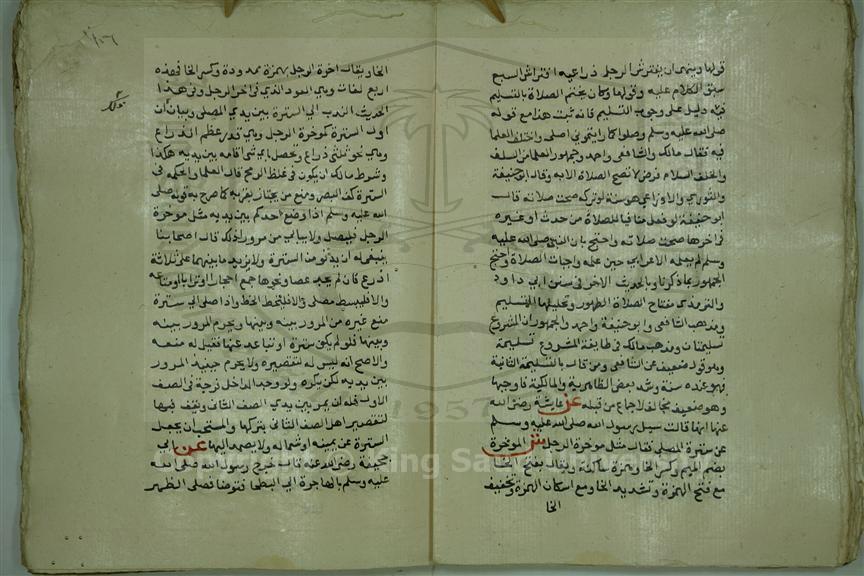 قولها وينهى ان يفترش الرجل ذراعيه افتراش السبع
سبق الكلام عليه وقولها وكان يختم الصلاة بالتسليم
فيه دليل على وجوب التسليم فانه ثبت هذا مع قوله
صلى الله عليه وسلم وصلوا كما رايتموني اصلي واختلف العلما
فيه فقال مالك والشافعي واحد وجمهور العلما من السلف
والخلف السلام فرض لا تصح الصلاة الا به وقال ابو حنيفة
والثوري والاوزاعي هو سنة لو تركه صحت صلاته قال
ابو حنيفة لو فعل منافيا للصلاة من حدث او غيره
في اخرها صحت صلاته واحتج بان النبي صلى الله عليه
وسلم لم يعلمه الاعرابي حين علمه واجبات الصلاة واحتج
الجمهور بما ذكرناه وبالحديث الاخر في سنن ابي داود
والترمذي مفتاح الصلاة الطهور وتحليلها التسليم
ومذهب الشافعي وابو حنيفة واحد والجمهور ان المشروع
تسليمتان ومذهب مالك في طايفة المشروع تسليمة
وهو قول ضعيف عن الشافعي ومن قال بالتسليمة الثانية
فهو عنده سنة وشذ بعض الظاهرية والمالكية فاوجبها
وهو ضعيف مخالف لاجماع من قبله عن عايشة رضي الله
عنها انها قالت سيل رسول الله صلى الله عليه وسلم
عن سترة المصلي فقال مثل موخرة الرجل ش الموخرة
بضم الميم وكسر الخا وهمزة ساكنة ويقال بفتح الخا
مع فتح الهمزة وتشديد الخا ومع اسكان الهمزة وتخفيف
الخا
الخا ويقال اخرة الرجل بهمزة ممدودة وكسر الخا فهذه
اربع لغات وهي العود الذي في اخر الرجل وفي هذا
الحديث الندب الي السترة بين يدي المصلي وبيان ان
اول السترة كموخرة الرجل وهي قدر عظم الذراع
وهي نحو ثلثي ذراع وتحصل باي شي اقامه بين يديه هكذا
وشرط مالك ان يكون في غلظ الرمح قال العلما والحكمة في
السترة كف البصر ومنع من يجتاز بقربه كما صرح به قوله صلى
الله عليه وسلم اذا وضع احدكم بين يديه مثل موخرة
الرجل فليصل ولا يبالي من مر ورا ذلك قال اصحابنا
ينبغي له ان يدنو من السترة ولا يزيد ما بينهما على ثلاثة
اذرع فان لم يجد عصا ونحوها جمع احجارا او ترابا او متاعه
والا فليبسط مصلى والا فليخط الخط واذا صلى الي سترة
منع غيره من المرور بينه وبينها ويحرم المرور بينه
وبينها فلو لم يكن سترة او تباعد عنها فقيل له منعه
والاصح انه ليس له لتقصيره ولا يحرم حينيذ المرور
بين يديه لكن يكره ولو وجد الداخل فرجة في الصف
الاول فله ان يمر بين يدي الصف الثاني ويقف فيها
لتقصير اهل الصف الثاني بتركها والمستحب ان يجعل
السترة عن يمينه او شماله ولا يصمد اليها عن ابي
جحيفة رضي الله عنه قال خرج رسول الله صلى الله
عليه وسلم بالهاجرة الي البطحا فتوضا فصلى الظهر
1957